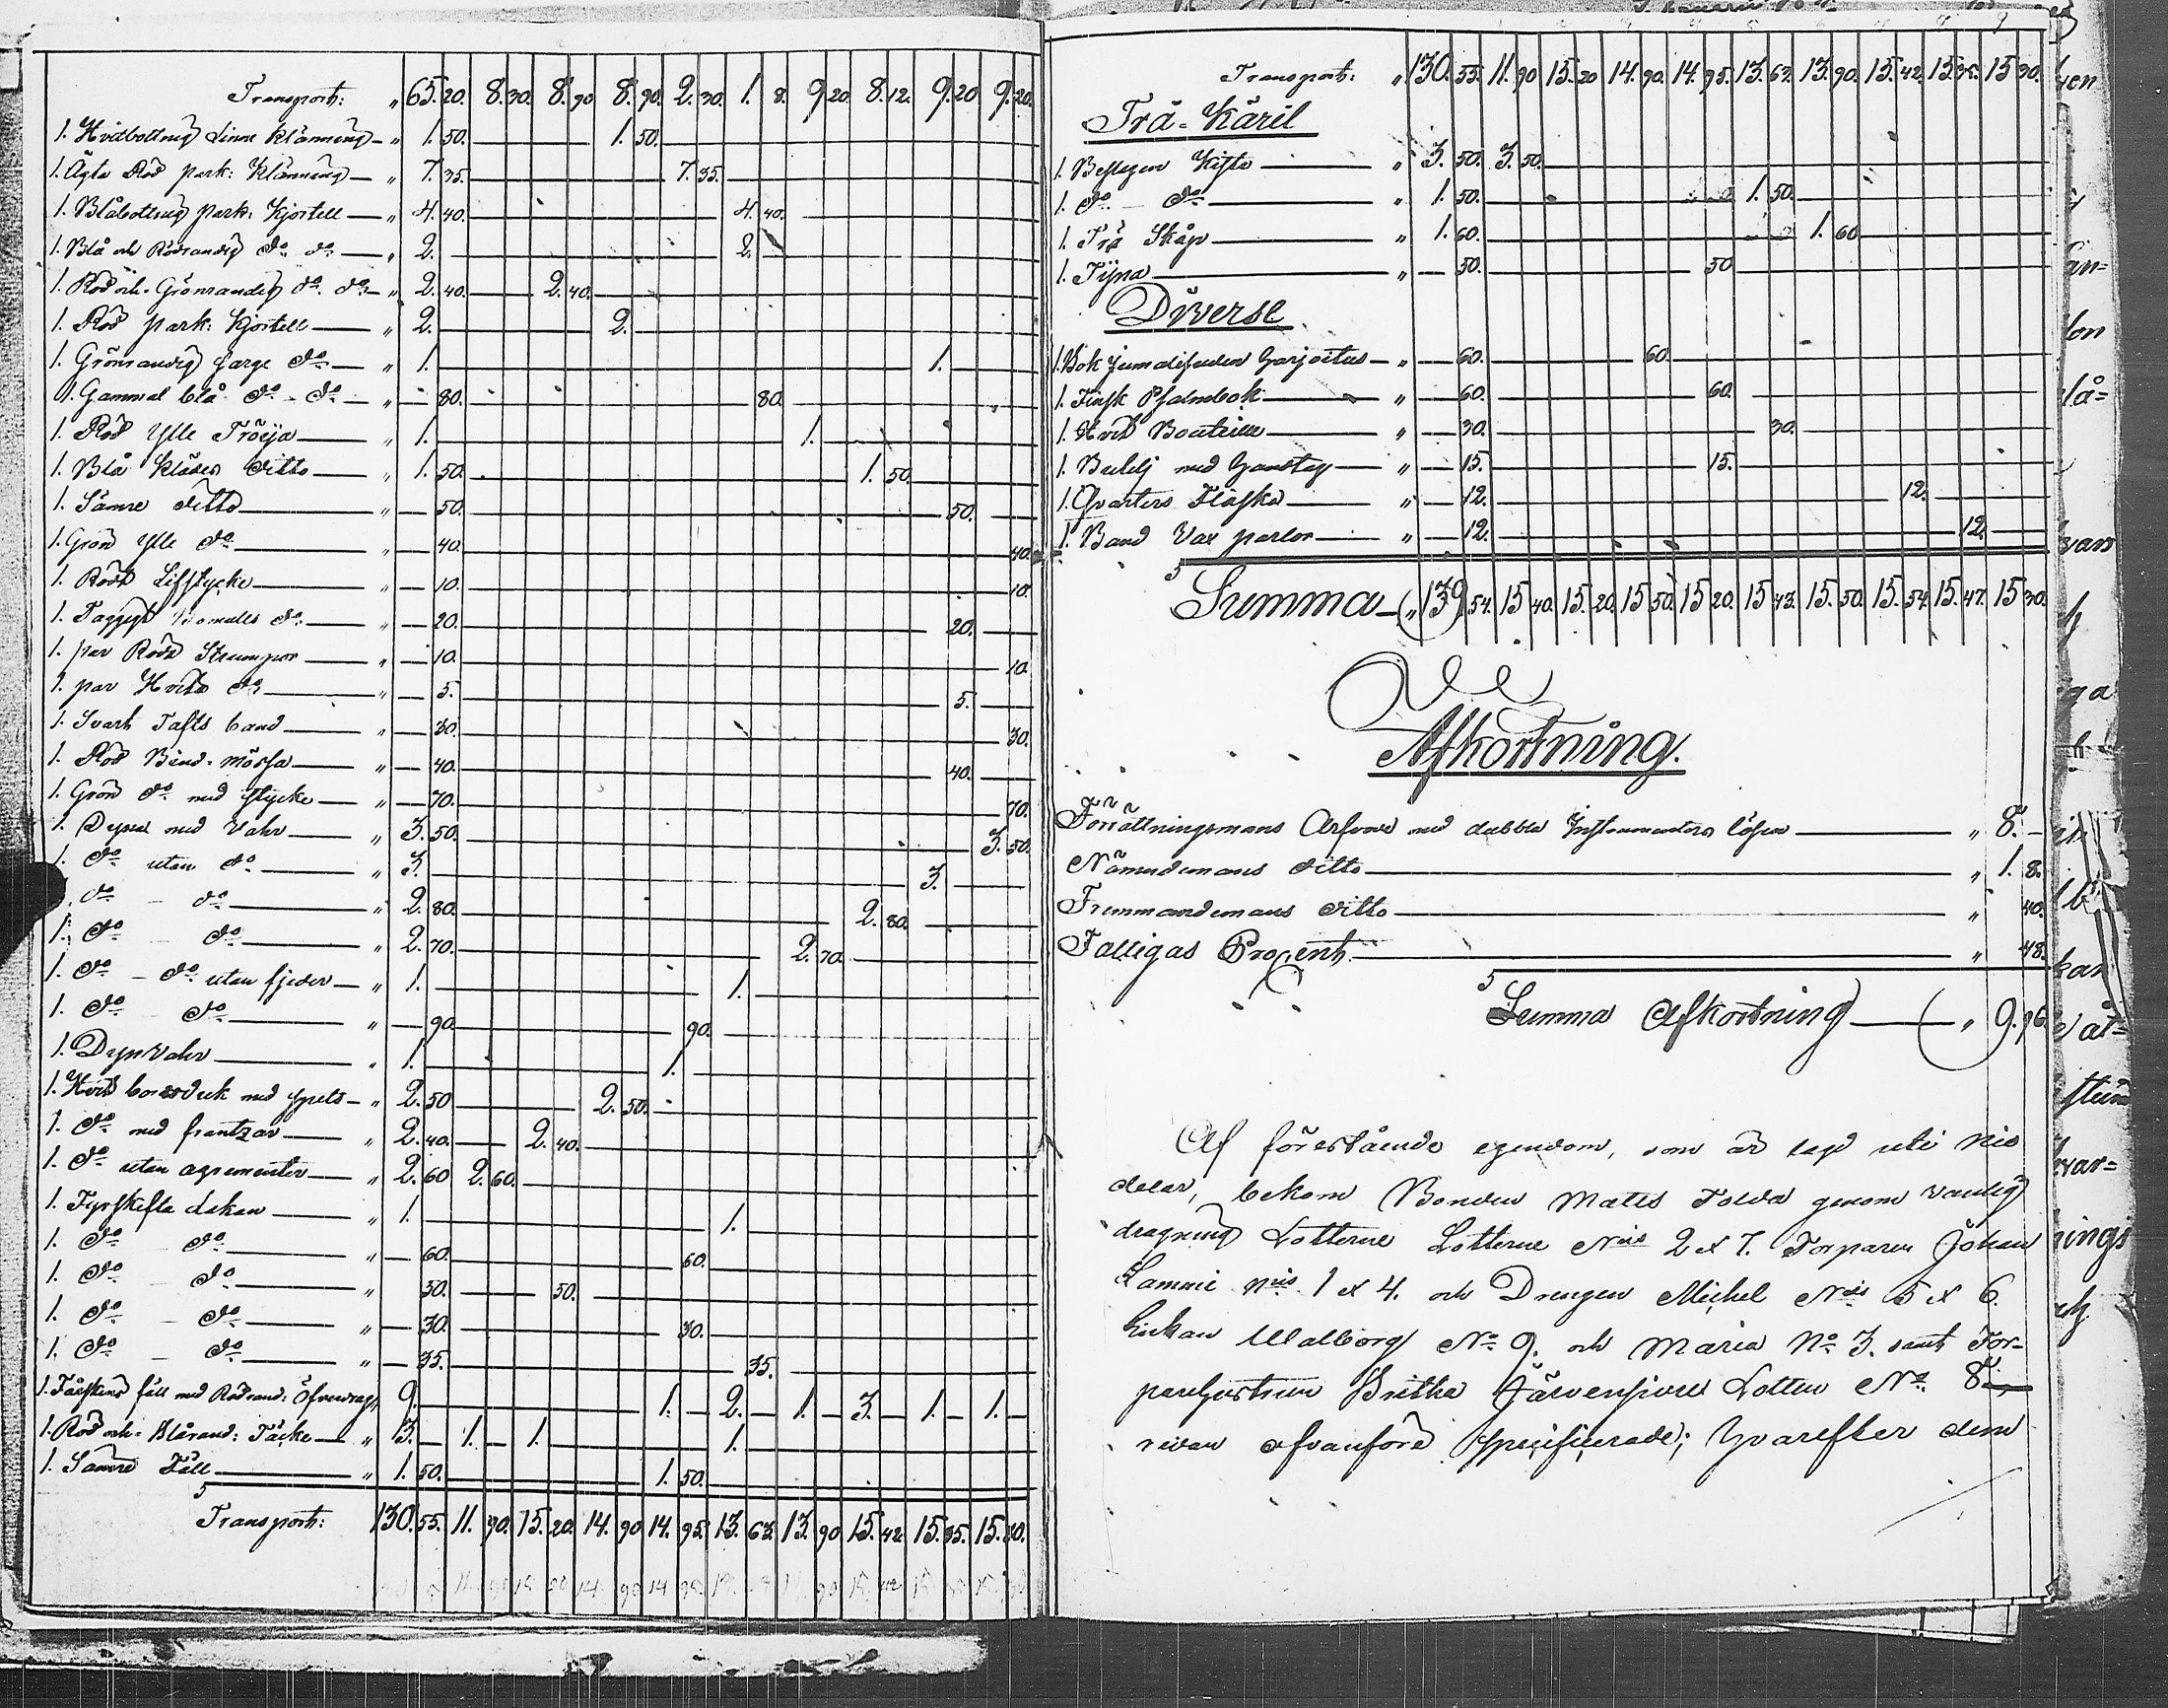 Transport: " 65. 20. 8. 30. 8. 90 8. 90. 2. 30. 1. 8. 9 20 8. 12. 9. 20 9. 20.
1. Hvitbottnig Linne Klänning " 1. 50. 1. 50.
1. Ägta Röd park: Klänning " 7. 35. 7. 35.
1. Blåbottnig park: Kjortell " 4. 40. 4. 40.
1. Blå och Rödrandig do do " 2. 2.
1. Röd och Grönrandig do do " 2. 40. 2. 40.
1. Röd park: Kjortell " 2. 2.
1. Grönrandig sarge do " 1. 1.
1. Gammal blå do do " 80. 80.
1. Röd Ylle Tröija 1. 1.
1. Blå Klädes ditto " 1. 50. 1. 50.
1. Sämre ditto " 50. 50.
1. Grön Ylle do " 40. 40.
1. Rödt Lifstycke " 10. 10.
1. do " 20. 20.
1. par Röda Strumpor " 10. 10.
1. par Hvita do " 5. 5.
1. Svart Tafts band " 30. 30.
1. Röd Bind-mössa " 40. 40.
1. Grön do med stycke " 70. 70.
1. Dyna med Vahr " 3. 50. 3. 50.
1. do utan do " 3. 3.
1. do do " 2. 80. 2. 80.
1. do do " 2. 70. 2. 70.
1. do do utan fjeder " 1. 1.
1. do do " 90. 90.
1. Dynvahr " 1. 1.
1. Hvit bordsduk med spets " 2. 50 2. 50.
1. do med frantzar " 2. 40. 2. 40.
1. do utan agrementer " 2. 60 2. 60.
1. Fyrskefta Lakan " 1. 1.
1. do do " 60. 60.
1. do do " 50. 50.
1. do do " 30. 30.
1. do do " 35. 35.
1. Fårskins fäll med Rödrand: Öfverdrag " 9. 1. 2. 1. 3. 1. 1.
1. Röd och Blårand: Täcke " 3. 1. 1. 1.
1. Sämre Fäll " 1. 50. 1. 50.
Transport: 130. 55. 11. 90. 15. 20. 14. 90 14. 95. 13. 63. 13. 90 15. 42 15. 35. 15. 30.
Transport: " 130. 55. 11. 90 15. 20 14. 90. 14. 95. 13. 63. 13. 90. 15. 42. 15. 35. 15 30.
Trä-Käril
1. Beslagen Kista " 3. 50. 3. 50.
1. do do " 1. 50. 1. 50.
1. Trä Skåp " 1. 60. 1. 60
1. Tijna " 50. 50
Diverse
1. Bok " 60. 60.
1. Finsk Psalmbok " 60. 60.
1. Hvit Bouteille " 30. 30.
1. med " 15. 15.
1. Qvarters Flaska " 12. 12.
1. Band Vax perlor " 12. 12.
Summa " 139. 54. 15 40. 15. 20. 15 50. 15 20. 15 43. 15. 50. 15. 54. 15. 47. 15 30.
Afkortning.
Förrättningsmans Arfvode med dubbla Instrumentets lösen " 8.
Nämndemans ditto " 1. 8.
Fremmandemans ditto " 40.
Fattigas Procent " 48.
Summa Afkortning " 9. 96.
Af förestående egendom, som är lagd uti nio
delar, bekom Bonden Matts Tolda genom vanlig
dragning Lotterne Lotterne Nris 2 & 7. Torparen Johan
Lammi Nris 1 & 4. och Drengen Michel Nris 5 & 6.
Enkan Walborg No 9. och Maria No 3. samt Tor-
parehustrun Britha Lotten No 8
redan ofvanföre specificerade; hvarefter dem